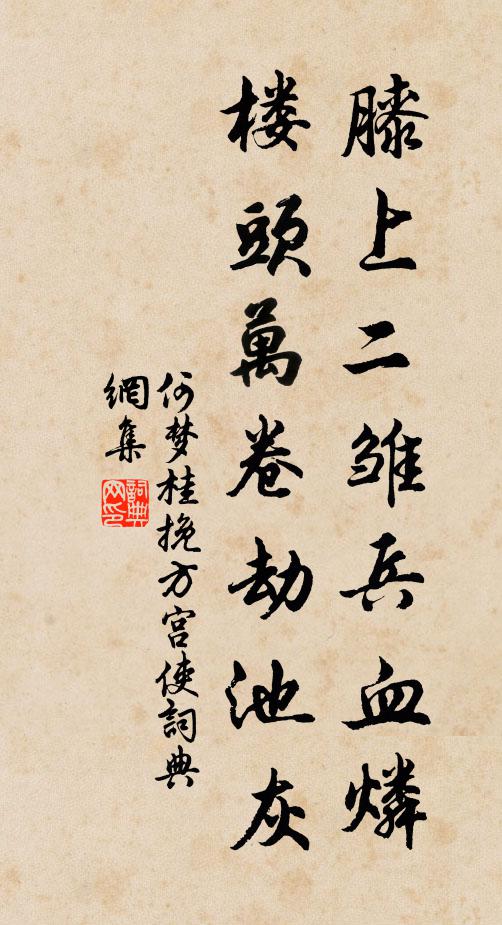 膝上二雏兵血燐
楼頭萬卷劫池灰
何梦桂挽方宫使詞典
網集
詞典
网印